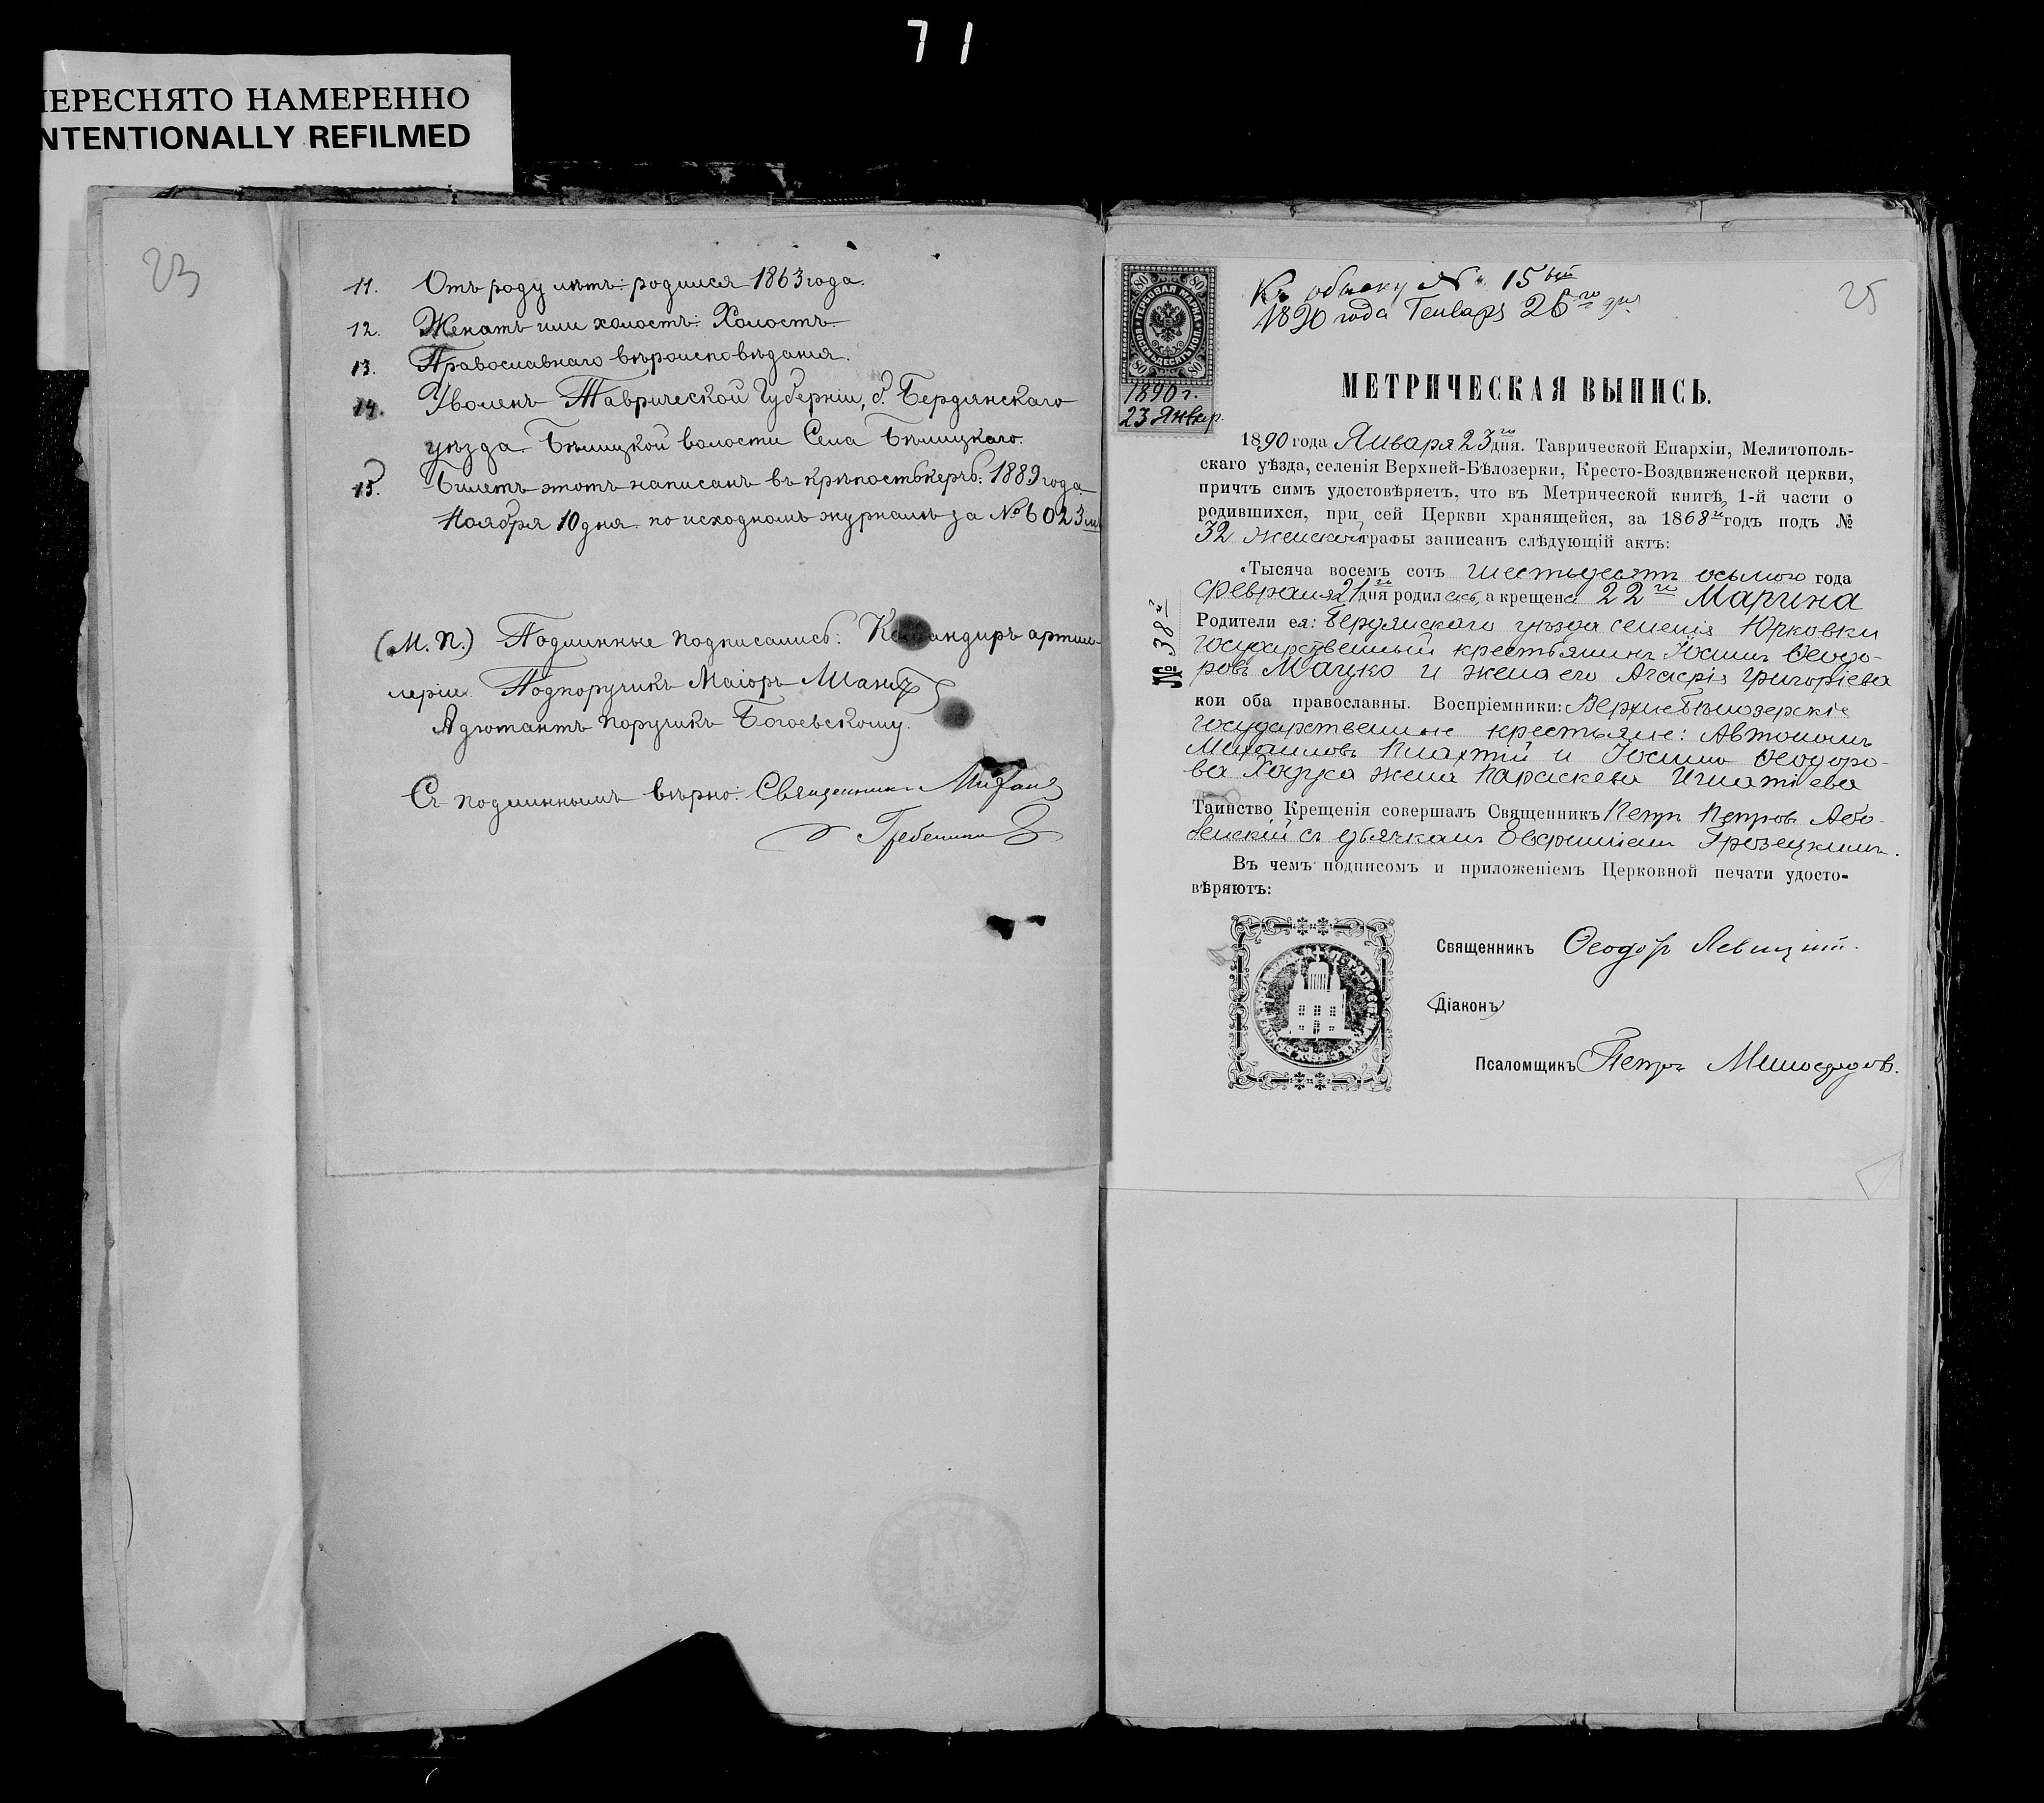 71
ПЕРЕСНЯТО НАМЕРЕННО
INTENTIONALLY REFILMED
23
11. Отъ роду лѣтъ: родился 1863 года.
12. Женатъ или холостъ: Холостъ
13. Православнаго вѣроисповѣданія.
14. Уволенъ Таврической Губерніи, Бердянскаго
уѣзда Бѣлицкой волости Села Бѣлицкаго.
15. Билетъ этотъ написанъ въ крѣпость Керчь: 1889 года
Ноября 10 дня по исходномъ журналѣ за № 6023
(М. П.) Подлинные подписалисъ: Командиръ артил-
леріи Подпоручикъ Маіоръ
Адютантъ поручикъ Богоевскому.
Съ подлиннымъ вѣрно: Священникъ Михаил
25
Къ обыску № 15
1890 года Генваря 26го дня
80 80
ГЕРБОВАЯ МАРКА ВОСЕМЬДЕСЯТЪ КОП.
80 80
1890 г.
23 Январ.
МЕТРИЧЕСКАЯ ВЫПИСЬ.
1890 года Января 23го дня. Таврической Епархіи, Мелитополь-
скаго уѣзда, селенія Верхней-Бѣлозерки, Кресто-Воздвиженской церкви,
причтъ симъ удостовѣряетъ, что въ Метрической книгѣ, 1-й части о
родившихся, при сей Церкви хранящейся, за 1868й годъ подъ №
32 женской графы записанъ слѣдующій актъ:
«Тысяча восемъ сотъ шестьдесятъ осьмого года
Февраля 21го дня родилась, а крещена 22го Марина
Родители ея: Бердянскаго уѣзда селенія Юрковки
государственный крестьянинъ Іосифъ Ѳеодо-
ровъ Мацко и жена его Агафія Григоріева
кои оба православны. Воспріемники: Верхнебѣлозерскіе
государственные крестьяне: Автономъ
Михаиловъ Плахтій и Іосифа Ѳеодоро-
ва жена Параскева Игнатіева
Таинство Крещенія совершалъ Священникъ Петръ Петровъ
съ дьячкомъ
Въ чемъ подписомъ и приложеніемъ Церковной печати удосто-
вѣряютъ:
№ 38й
Священникъ Ѳеодоръ Левицкій.
Діаконъ
Псаломщикъ Петръ Милосердовъ.